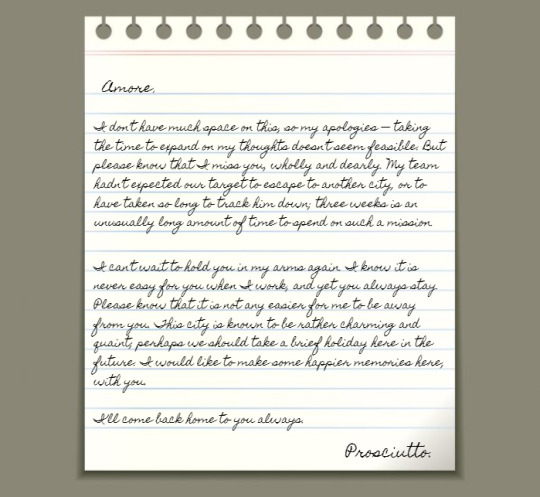 Amore,
I don't have much space on this, so my apologies — taking
the time to expand on my thoughts doesn't seem feasible. But
please know that I miss you, wholly and dearly. My team
hadn't expected our target to escape to another city, or to
have taken so long to track him down; three weeks is an
unusually long amount of time to spend on such a mission.
I can't wait to hold you in my arms again. I know it is
never easy for you when I work, and yet you always stay.
Please know that it is not any easier for me to be away
from you. This city is known to be rather charming and
quaint; perhaps we should take a brief holiday here in the
future. I would like to make some happier memories here,
with you.
I'll come back home to you always.
Prosciutto.